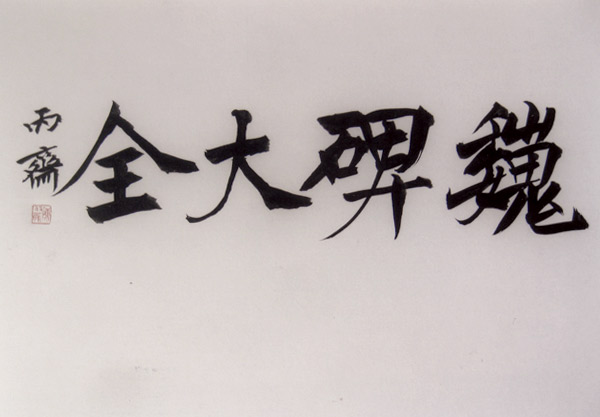 魏碑大全
丙齋